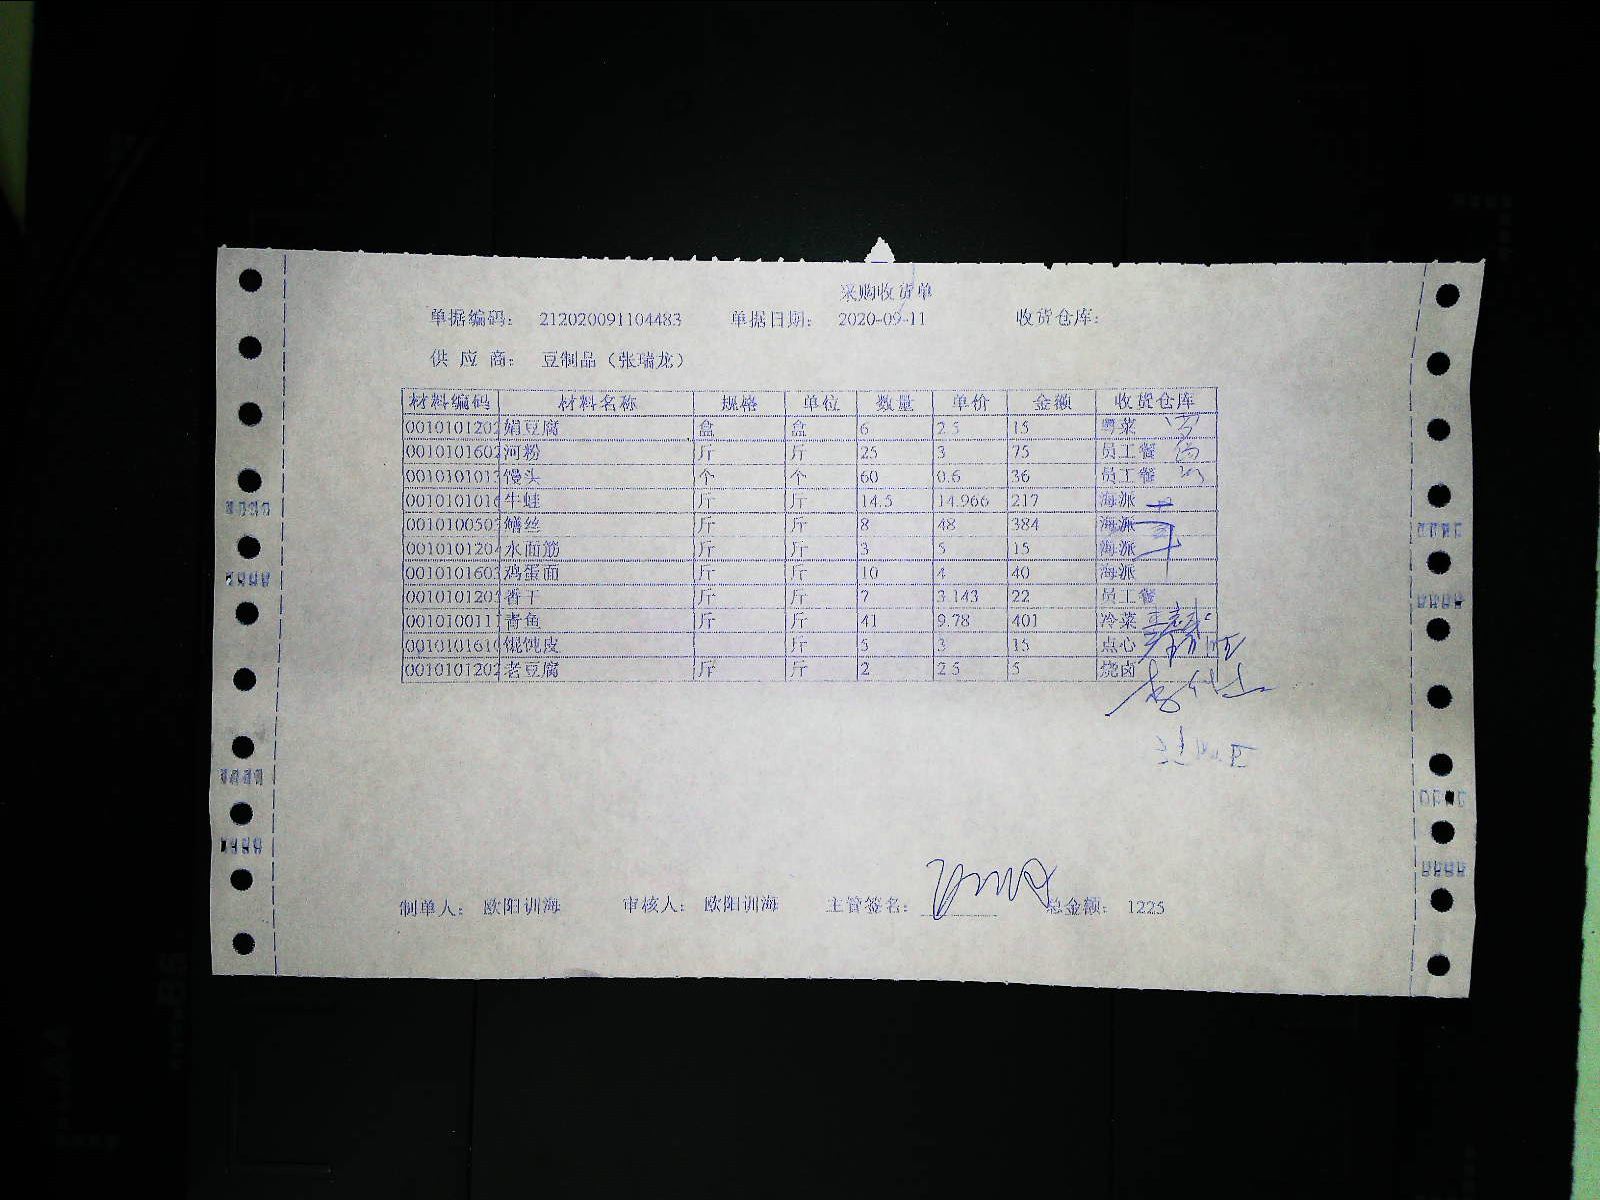 采购收货单
单据编码： 212020091104483 单据日期： 2020-09-11 收货仓库：
供 应 商： 豆制品（张瑞龙）
材料编码 材料名称 规格 单位 数量 单价 金额 收货仓库
0010101202 娟豆腐 盒 盒 6 2.5 15 粤菜
0010101602 河粉 斤 斤 25 3 75 员工餐
0010101013 馒头 个 个 60 0.6 36 员工餐
0010101016 牛蛙 斤 斤 14.5 14.966 217 海派
0010100503 鳝丝 斤 斤 8 48 384 海派
0010101204 水面筋 斤 斤 3 5 15 海派
0010101603 鸡蛋面 斤 斤 10 4 40 海派
0010101203 香干 斤 斤 7 3.143 22 员工餐
0010100111 青鱼 斤 斤 41 9.78 401 冷菜
0010101610 馄饨皮 斤 5 3 15 点心
0010101202 老豆腐 斤 斤 2 2.5 5 烧卤
制单人： 欧阳训海 审核人： 欧阳训海 主管签名： 总金额： 1225